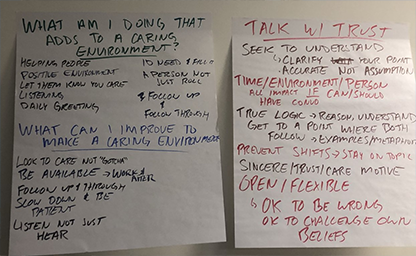 WHAT AM I DOING THAT
ADDS TO A CARING
ENVIRONMENT?
HELPING PEOPLE
POSITIVE ENVIRONMENT
LET THEM KNOW YOU CARE
LISTENING
DAILY GREETING
ID NEED & FILL IT
A PERSON NOT
JUST ROLE
& FOLLOW UP
FOLLOW THROUGH
WHAT CAN I IMPROVE TO
MAKE A CARING ENVIRONMENT
LOOK TO CARE NOT "GOTCHA"
BE AVAILABLE → WORK &
AFTER
FOLLOW UP & THROUGH
SLOW DOWN & BE
PATIENT
LISTEN NOT JUST
HEAR
TALK W/ TRUST
SEEK TO UNDERSTAND
↳ CLARIFY YOUR POINT
ACCURATE NOT ASSUMPTION
TIME/ENVIRONMENT/PERSON
ALL IMPACT IF CAN/SHOULD
HAVE CONVO
TRUE LOGIC → REASON, UNDERSTAND
GET TO A POINT WHERE BOTH
FOLLOW → EXAMPLES/METAPHORS
PREVENT SHIFTS → STAY ON TOPIC
SINCERE/TRUST/CARE MOTIVE
OPEN/FLEXIBLE
↳ OK TO BE WRONG
OK TO CHALLENGE OWN
BELIEFS